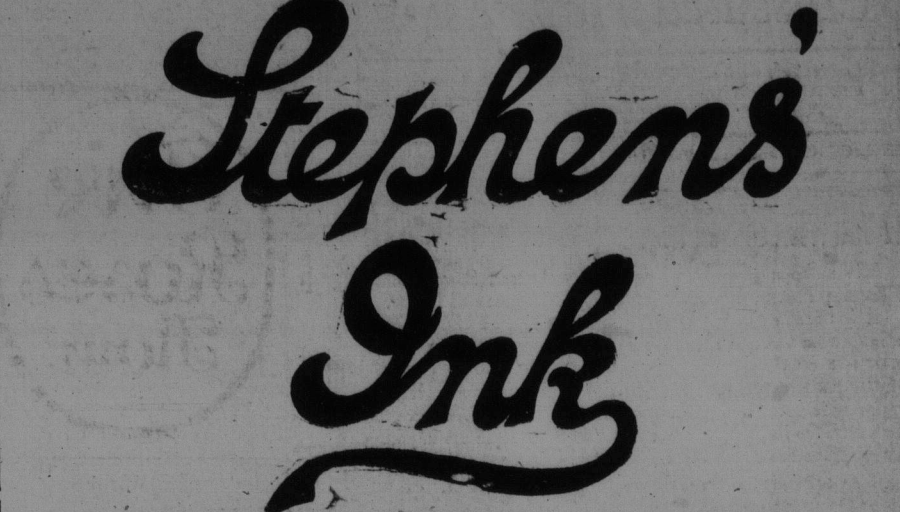 Stephens'
Ink